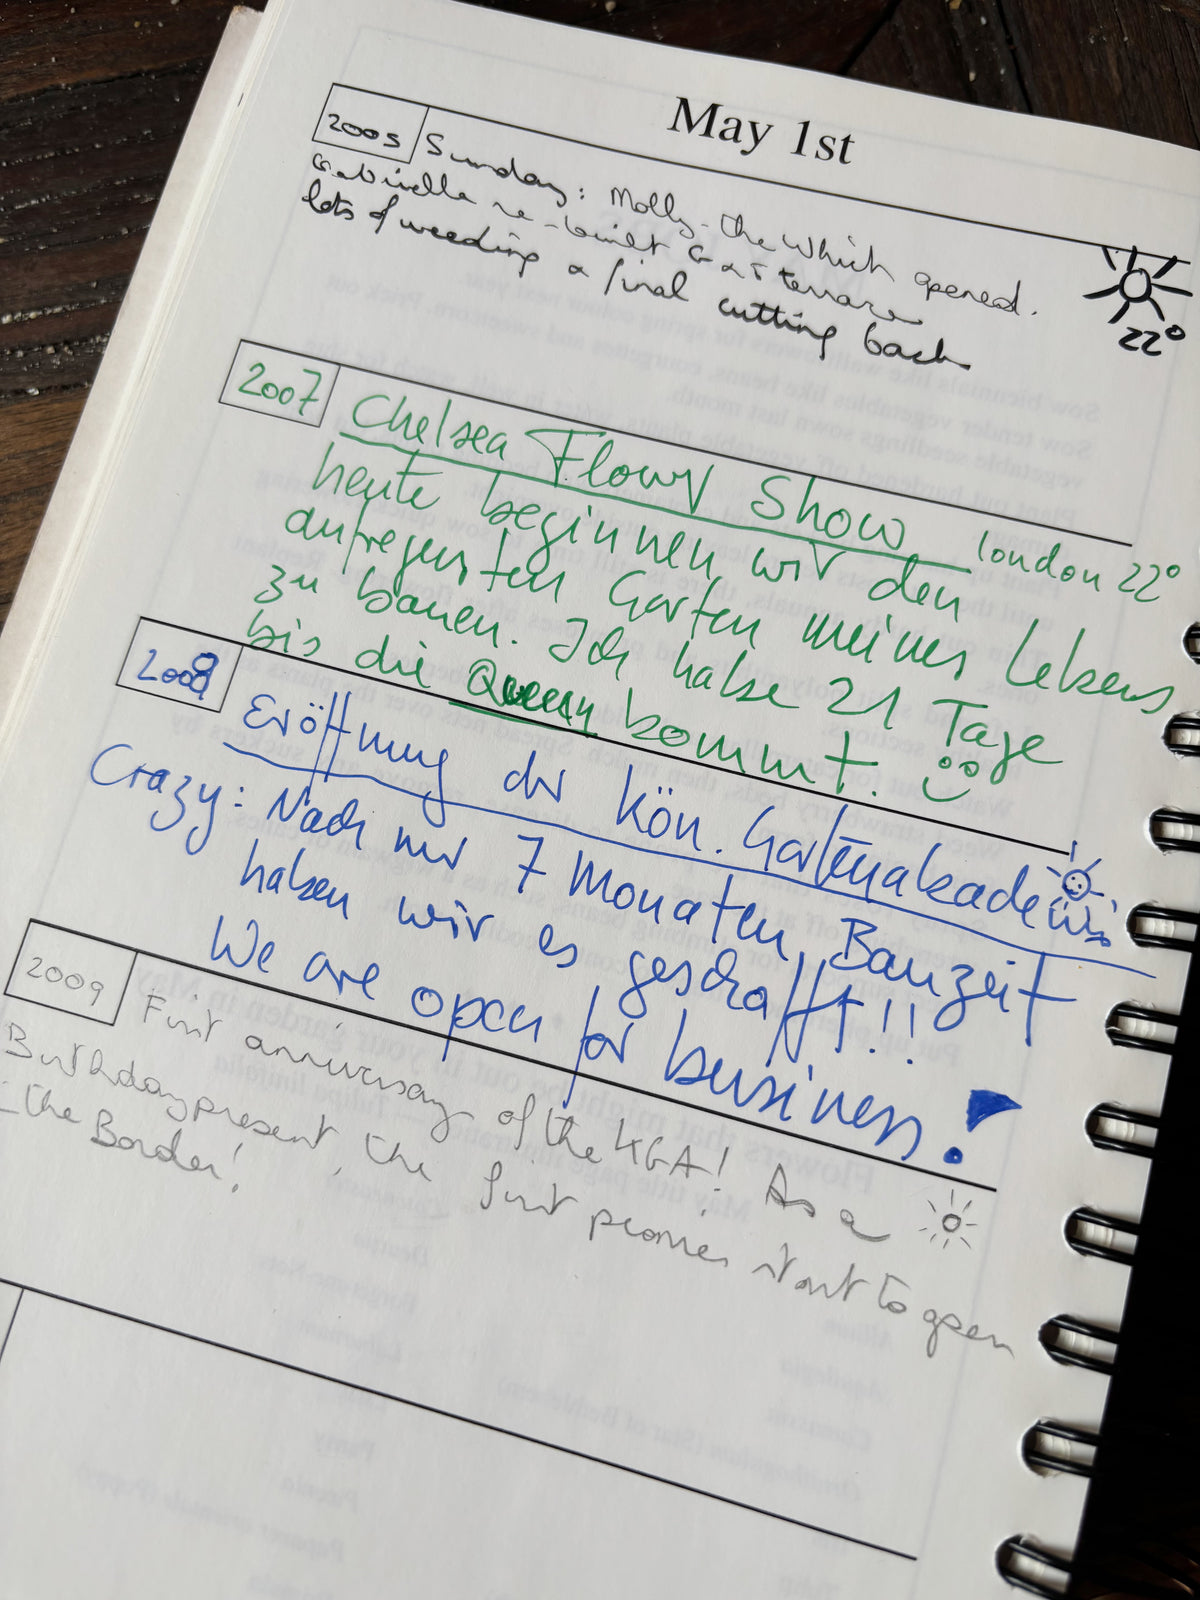 May 1st
2005 Sunday: Molly-the Which opened.
Gabriella re-built terrace
lots of weeding a final cutting back
22°
2007 Chelsea Flower Show London 22°
heute beginnen wir den
aufregensten Garten meines Lebens
zu bauen. Ich habe 21 Tage
bis die Queen kommt.
2008 Eröffnung der Kön. Gartenakademie
Crazy: Nach nur 7 Monaten Bauzeit
haben wir es geschafft!!
We are open for business!
2009 First anniversay of the KGA! As a
Birthdaypresent, the first peonies start to open
the Border!